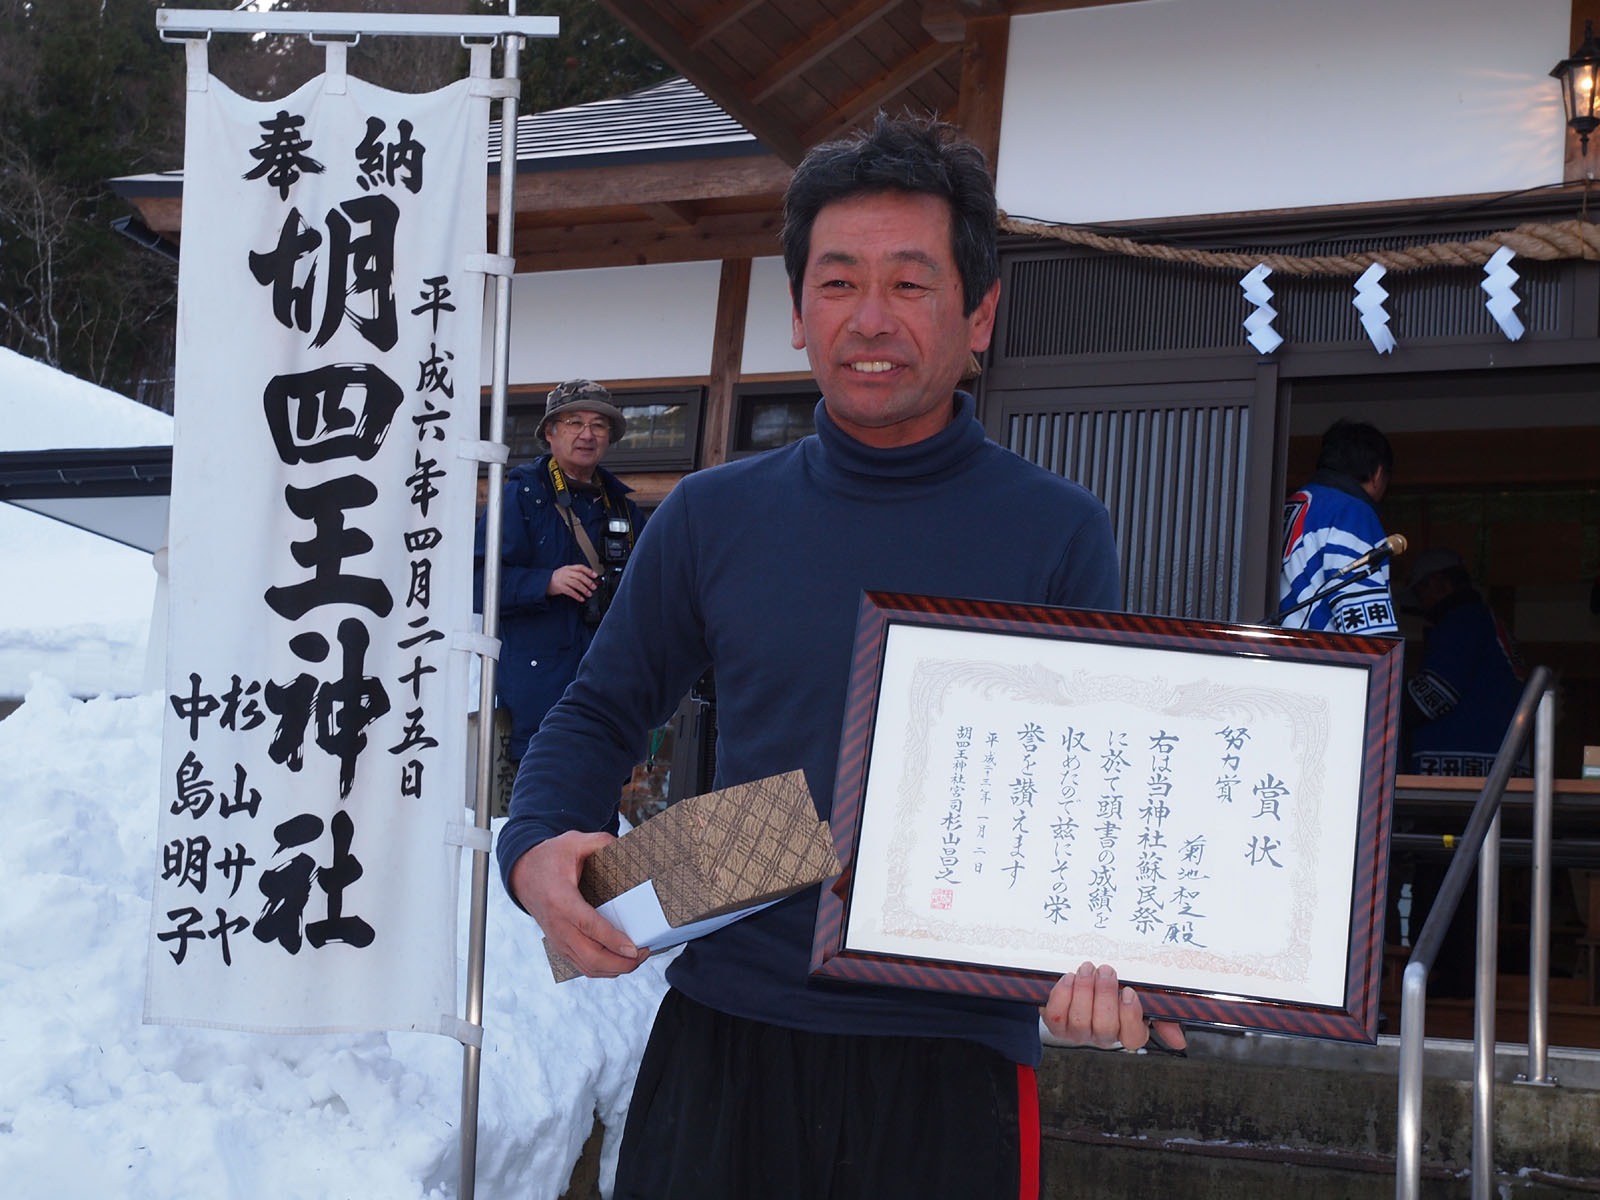 奉納
胡四王神社
平成六年四月二十五日
杉山サヤ
中島明子
賞状
努力賞
菊池和之殿
右は当神社蘇民祭
に於て頭書の成績を
収めたので茲にその栄
誉を讃えます
平成二十三年一月二日
胡四王神社宮司杉山昌之
Nikon
未申
子丑寅卯
卯辰